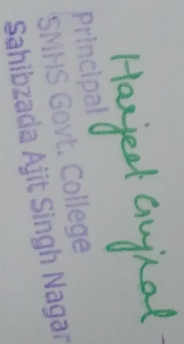 Harjeet Gujral
principal
SMHS Govt. College
Sahibzada Ajit Singh Nagar